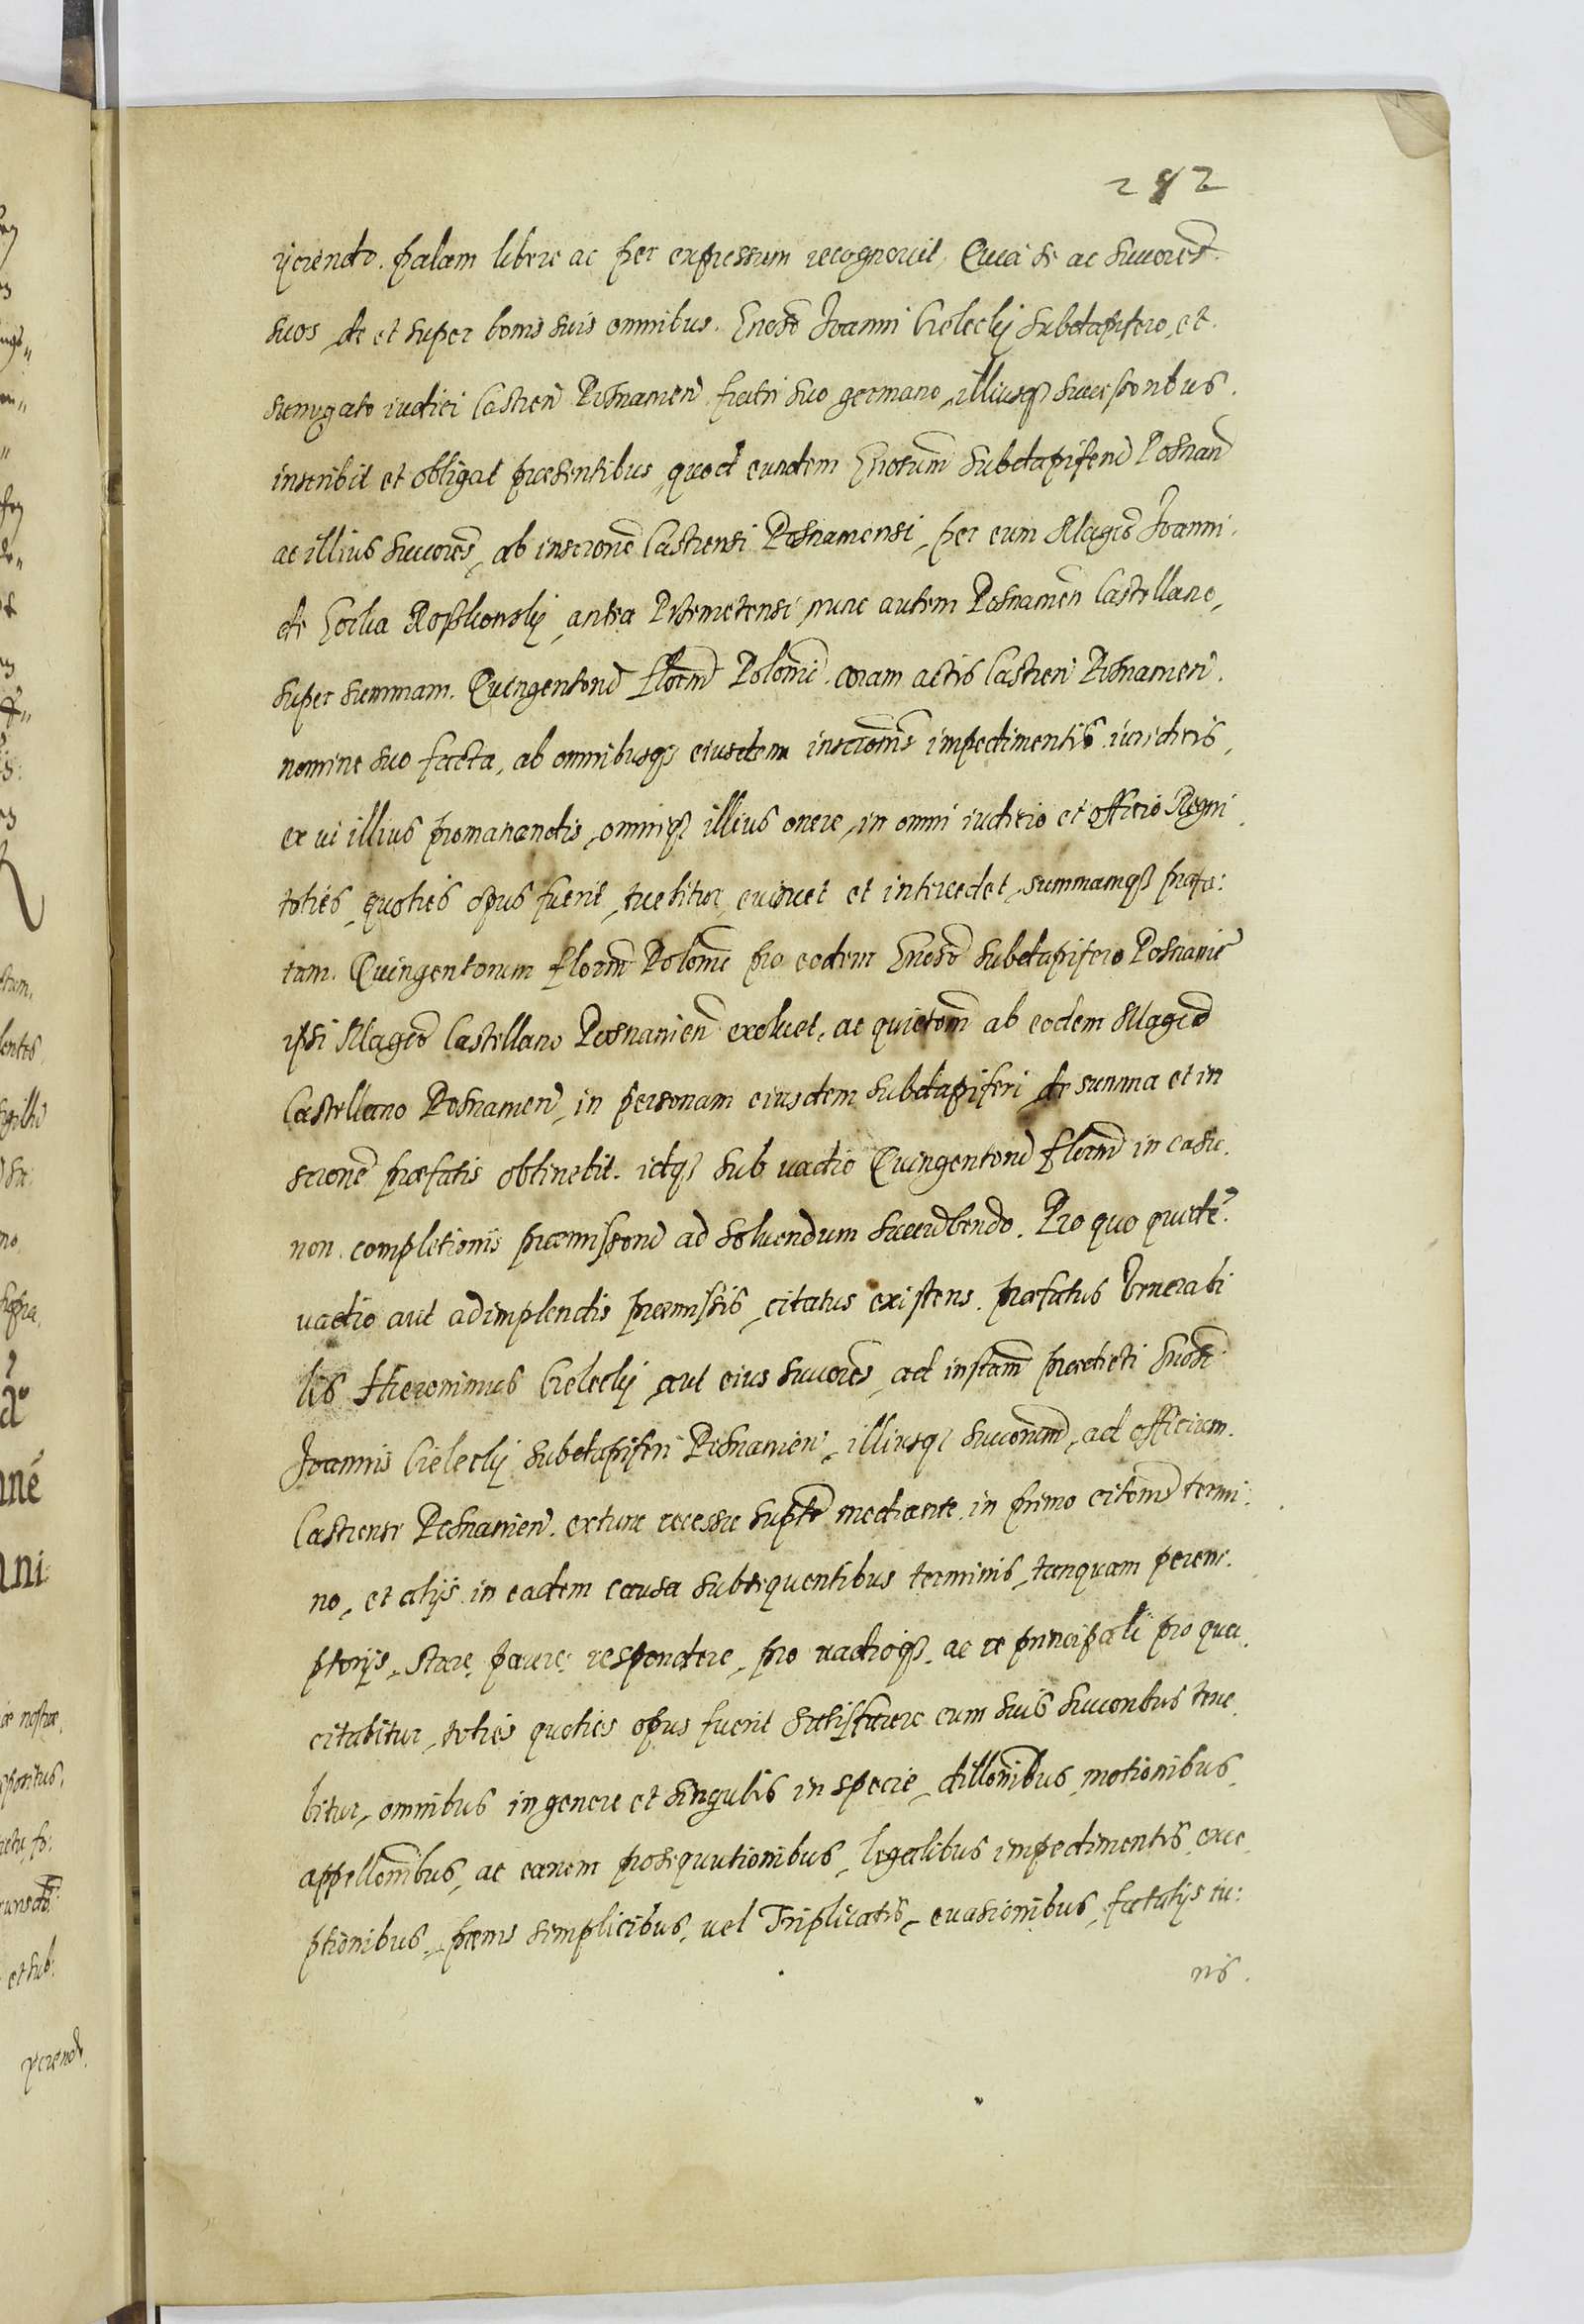 282
ijciendo. palam libere ac per expressum recognovit, Quia se ac Succores
suos de et super bonis suis omnibus. Gnoso Joanni Cielecky Subdapifero et
surrogato iudici Castren Posnanien fratri suo germano illiusq successoribus.
inscribit et obligat praesentibus, quod eundem Gnosum Subdapiferu Posnan
ac illius Succores, ab inscrone Castrensi Posnaniensi, per eum Magco Joanni
de Goslia Roszkowsky antea Premetensi nunc autem Posnanien Castellano,
super summam. Quingentoru florm Polonic. coram actis Castren Posnanien.
nomine suo facta, ab omnibusq eiusdem inscronis impedimentis iuridicis,
ex vi illius promanandis, omniq illius onere, in omni iudicio et officio Regni
toties quoties opus fuerit tuebitur evincet et intercedet, summamq praefa:
tam. Quingentorum florm Polonic pro eodem Gnoso Subdapifero Posnanie
ipsi Magco Castellano Posnanien exoluet, ac quietaom ab eodem Magco
Castellano Posnanien, in personam eiusdem Subdapiferi de summa et in
scrone praefatis obtinebit. idq sub vadio Quingentoru florm in casu.
non. completionis praemissoru ad soluendum succumbendo. Pro quo quide
vadio aut adimplendis praemissis, citatus existens. praefatus Venerabi
lis Hieronimus Cielecky aut eius Succores, ad instam praedicti Gnosi
Joannis Cielecky Subdapiferi Posnanien, illiusq Succorum, ad officium.
Castrense Posnanien. extunc recessu supto mediante. in primo citonis termi:
no, et alijs in eadem causa subsequentibus terminis, tanquam perem:
ptorijs, stare, parere, respondere, pro vadioq. ac re principali pro qua
citabitur, toties quoties opus fuerit satisfacere cum suis Succoribus tene
bitur, omnibus in genere et singulis in specie, dillonibus motionibus
appellonibus, ac earum prosequutionibus, legalibus impedimentis exce
ptionibus, paenis simplicibus, vel Triplicatis, evasionibus, fatalijs iu:
ris.